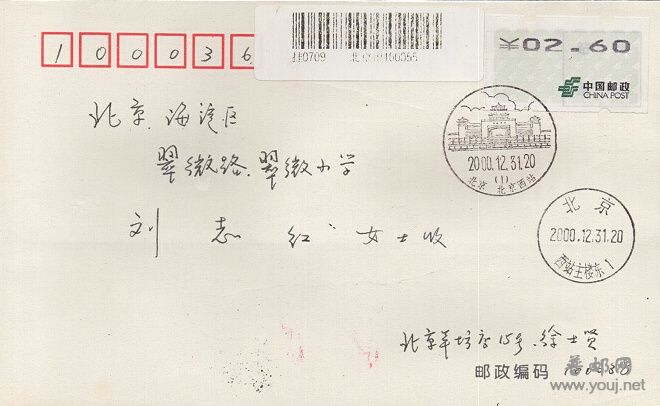 100036
挂0709
¥02.60
中国邮政
CHINA POST
北京.海淀区
翠微路.翠微小学
刘志红 女士收
2000.12.31.20
(1)
北京 北京西站
北京
2000.12.31.20
西站主楼东1
北京羊坊店15号.徐士贤
邮政编码
普邮网
www.youj.net